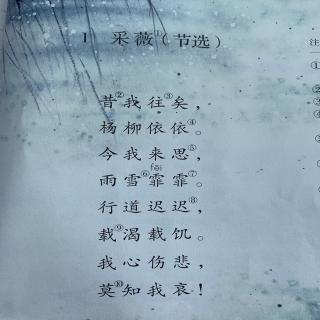 1 采薇①（节选）
昔②我往③矣，
杨柳依依④。
今我来思⑤，
fēi
雨雪⑥霏霏⑦。
行道迟迟⑧，
载⑨渴载饥。
我心伤悲，
莫⑩知我哀！
注
①